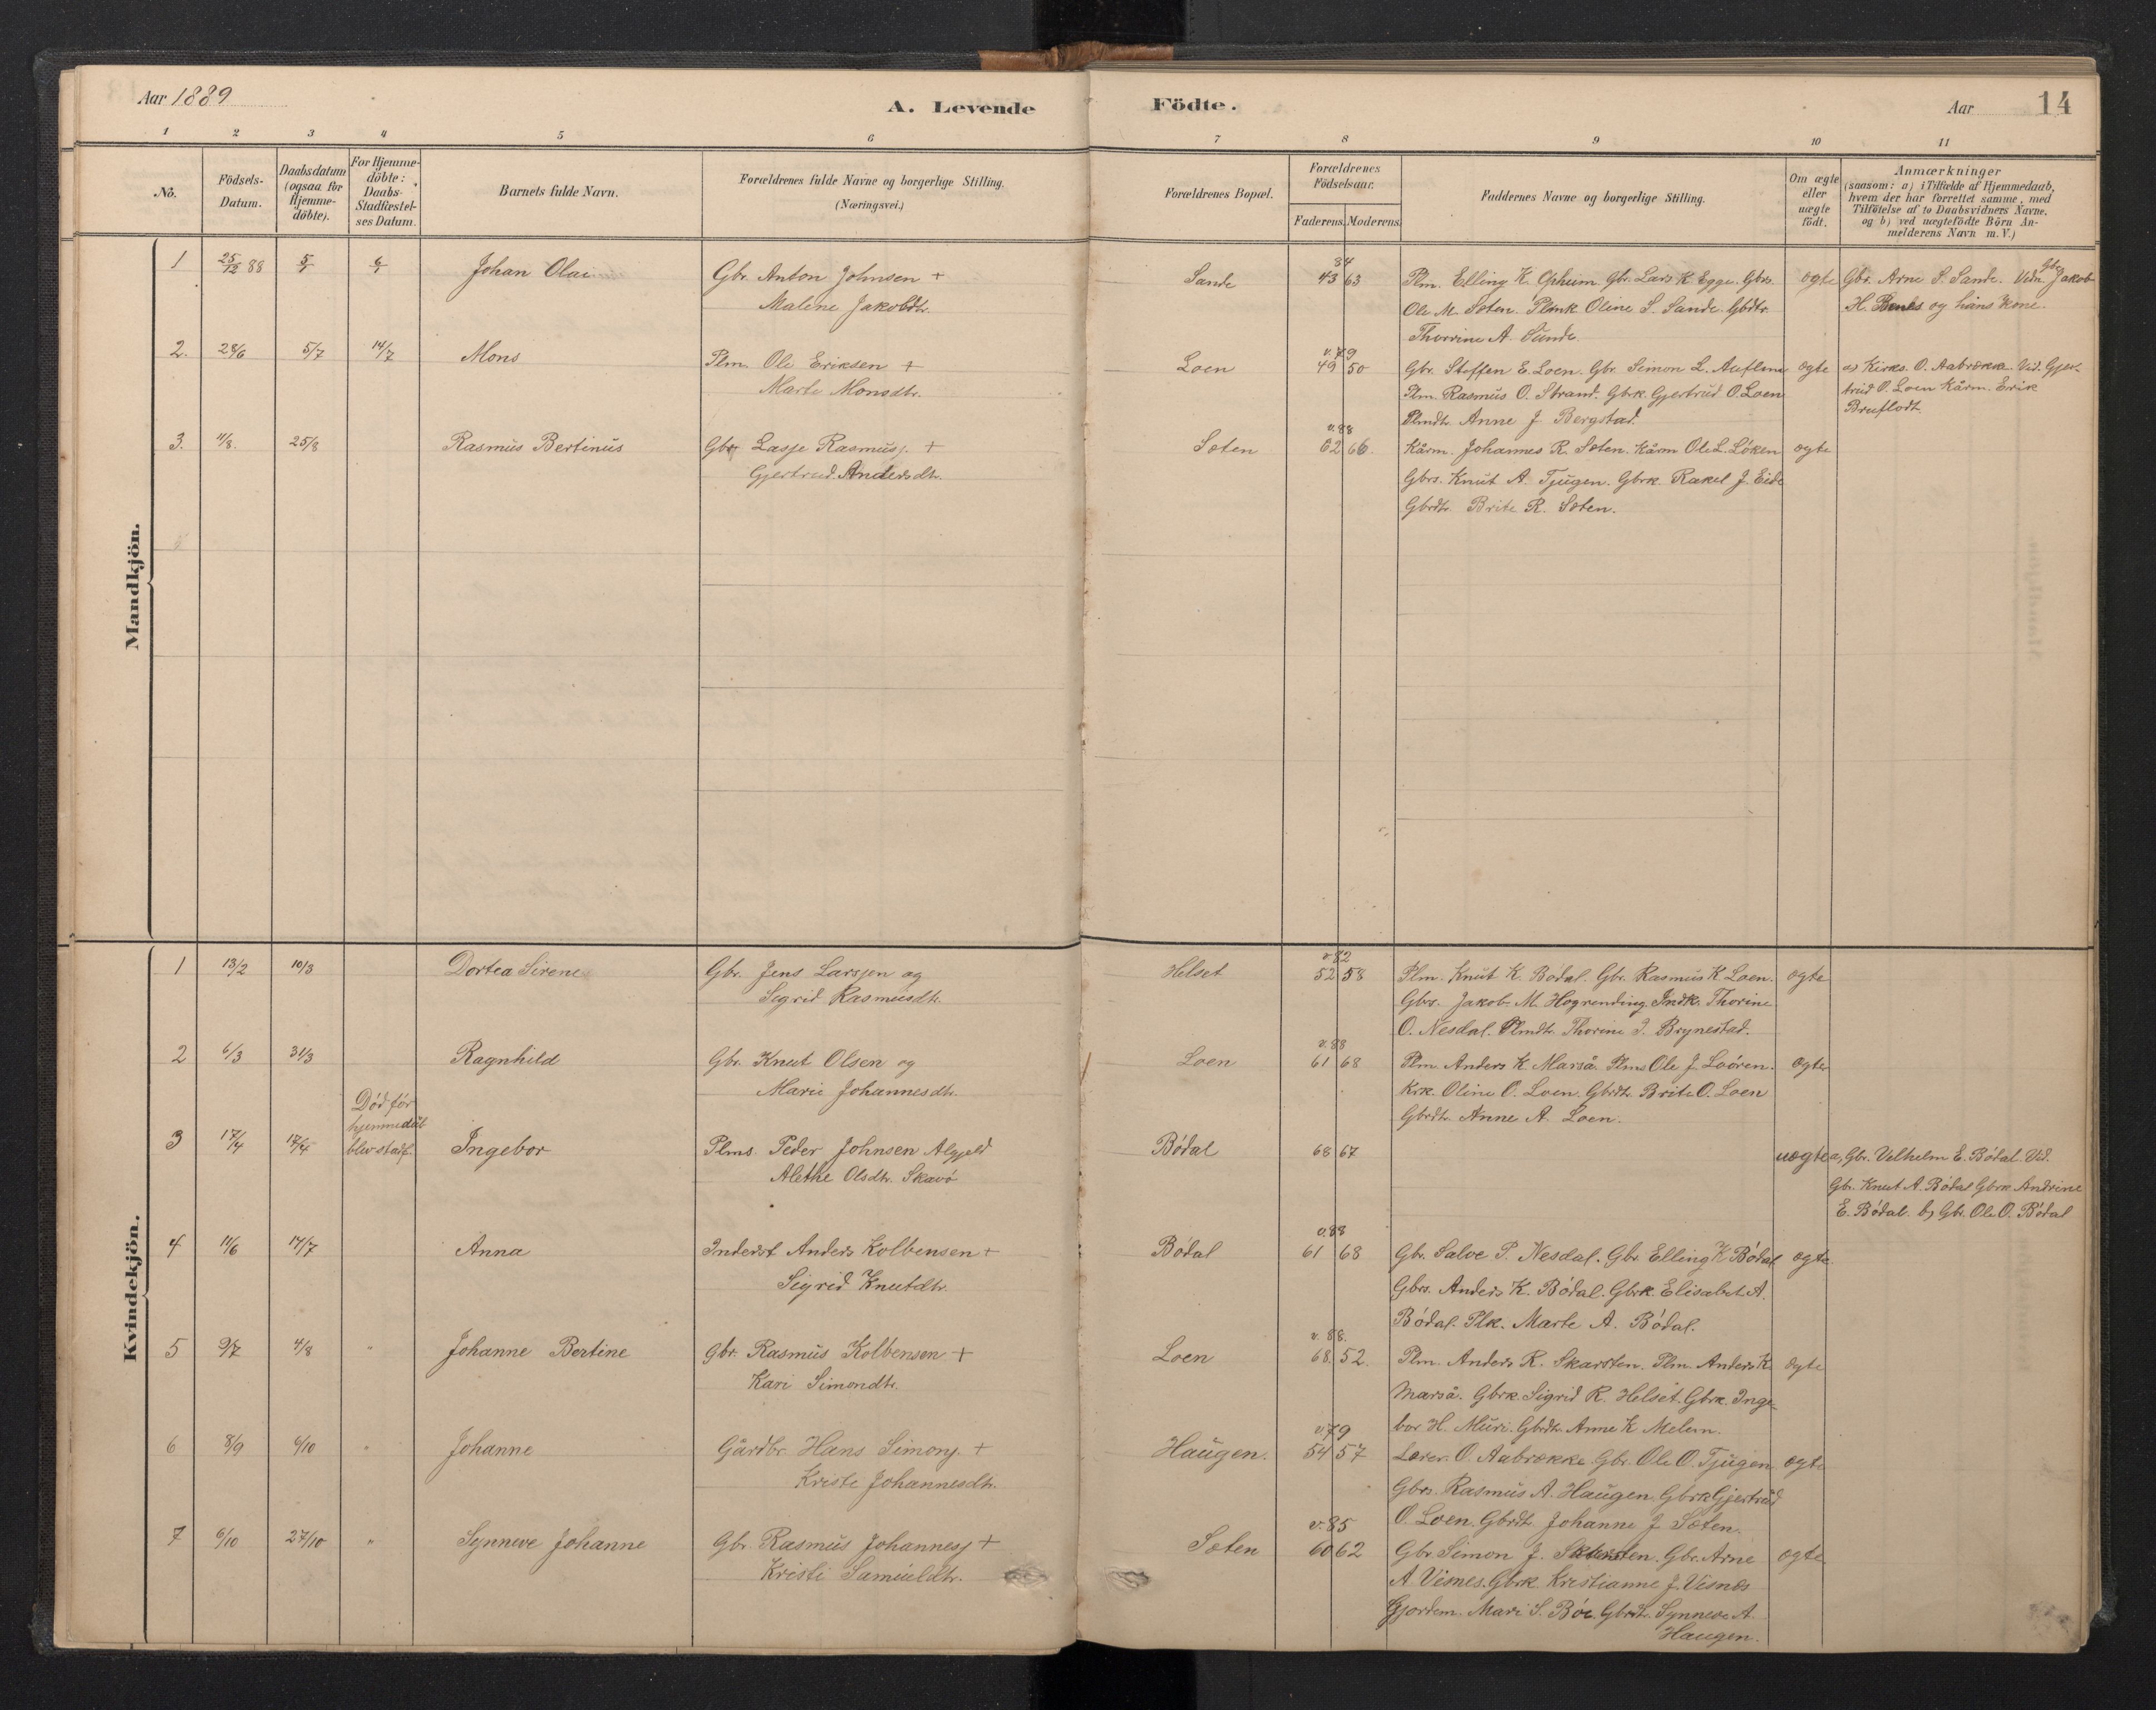 Aar 1889
A. Levende Födte.
Aar 14
1 2 3 4 5 6 7 8 9 10 11
No.
Födsels-Datum.
Daabsdatum (ogsaa for Hjemme-döbte).
For Hjemme-döbte: Daabs-Stadfæstel-ses Datum.
Barnets fulde Navn.
Forældrenes fulde Navne og borgerlige Stilling.
(Næringsvei.)
Forældrenes Bopæl.
Forældrenes Födselsaar.
Faderens. Moderens.
Faddernes Navne og borgerlige Stilling.
Om ægte eller uægte födt.
Anmærkninger
(saasom: a) i Tilfælde af Hjemmedaab,
hvem der har forrettet samme, med
Tilföielse af to Daabsvidners Navne,
og b) ved uægtefödte Börn An-
melderens Navn m.V.)
Mandkjön.
84
1 25/12 88 5/1 6/1 Johan Olai Gbr. Anton Johnsen + Sande 43 63 Plm. Elling K. Ophum Gbr. Lars K Egge. Gbrs. ægte Gbr. Arne S. Sande. Vidn. Gbr. Jakob
Malene Jakobdtr. Ole M. Sæten. Plmk Oline S. Sande. Gbdtr. H. Benes og hans Kone.
Thorrine A. Sande
v. 79
2. 28/6 5/7 14/7 Mons Plm. Ole Eriksen + Loen 49 50 Gbr. Steffen E. Loen. Gbr. Simon L. Auflem ægte a) Kirks. O. Aabrekk. Vid. Gjer-
Marte Monsdtr. Plm. Rasmus O. Strand. Gbrk. Gjertrud O. Loen trud O. Loen Kårm. Erik
Plmdtr. Anne J. Bergstad. Bruflodt.
v. 88
3. 11/8. 25/8 Rasmus Bertinus Gbr Lasse Rasmuss. + Sæten 62 66. Kårm. Johannes R. Sæten. Kårm Ole L. Löken ægte
Gjertrud Andersdtr. Gbrs. Knut A. Tjugen. Gbrk. Rakel J. Eide
Gbrdtr. Brite R. Sæten.
Kvindekjön.
v. 82
1 13/2 10/3 Dortea Sirene Gbr. Jens Larssen og Helset 52 58 Plm. Knut K. Bödal. Gbr. Rasmus K Loen. ægte
Sigrid Rasmusdtr. Gbrs. Jakob M. Hogrending Indk. Thorine
O. Nesdal. Plmdtr. Thorine I. Brynestad.
v. 88
2 6/3 31/3 Ragnhild Gbr. Knut Olsen og Loen 61 68 Plm. Anders K. Marså. Plms Ole J. Loören. ægte
Marie Johannesdtr. Krk. Oline O. Loen. Gbrdtr. Brite O. Loen
Gbrdtr. Anne A. Loen.
Död för
hjemmedåb
3 17/4 17/4 blev stadf. Ingebor Plms. Peder Johnsen Algjeld Bödal 68 67 uægte a, Gbr. Velhelm E. Bödal. Vid.
Alethe Olsdtr. Skavö Gbr. Knut A. Bödal Gbrk Andrine
E. Bödal. b) Gbr. Ole O. Bödal
v. 88
4 11/6 14/7 Anna Inderst Anders Kolbensen + Bödal 61 68 Gbr. Salve P. Nesdal. Gbr. Elling K Bödal ægte
Sigrid Knutdtr. Gbrs. Anders K. Bödal. Gbrk. Elisabet A.
Bödal. Plk. Marte A. Bödal.
v. 88.
5 9/7 4/8 " Johanne Bertine Gbr. Rasmus Kolbensen + Loen 68. 52. Plm. Anders R. Skarsten. Plm. Anders K. ægte
Kari Simondtr. Marså. Gbrk. Sigrid R. Helset. Gbrk. Inge-
bor H. Muri. Gbrdtr. Anne K Melem.
v. 79
6 8/9 6/10 " Johanne Gårdbr. Hans Simons. + Haugen. 54 57 Lærer. O. Aabrekke Gbr. Ole O. Tjugen ægte
Kriste Johannesdtr. Gbrs. Rasmus A. Haugen. Gbrk Gjertrud
O. Loen. Gbrdtr. Johanne J. Sæten.
v. 85
7 6/10 27/10 " Synneve Johanne Gbr. Rasmus Johanness + Sæten 60 62 Gbr. Simon J. Skarsten. Gbr. Arne ægte
Kristi Samueldtr. A. Visnes. Gbrk. Kristianne J. Visnes
Gjordem. Mari S. Böe. Gbrdtr. Synneve A.
Haugen.